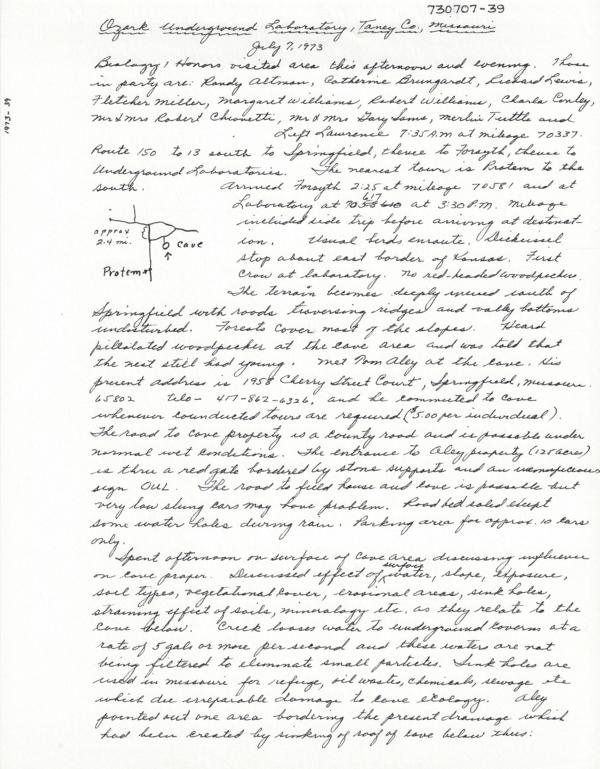 730707-39
Ozark Underground Laboratory, Taney Co., Missouri
July 7, 1973
1973-39
Biology, Honors visited area this afternoon and evening. Those
in party are: Randy Altman, Catherine Brungardt, Richard Lewis,
Fletcher Miller, Margaret Williams, Robert Williams, Charla Conley,
Mr & Mrs Robert Chionetti, Mr & Mrs Gary Sams, Merlin Tuttle and
Left Lawrence 7:35 A.M at mileage 70337.
Route 150 to 13 south to Springfield, thence to Forsyth, thence to
Underground Laboratories. The nearest town is Protem to the
south. Arrived Forsyth 2:25 at mileage 70581 and at
617
Laboratory at 70 at 3:30 P.M. Mileage
included side trip before arriving at destinat-
ion. Usual birds enroute. Dickcissel
stop about east border of Kansas. First
Crow at laboratory. No red-headed woodpecker.
approx
2.4 mi.
cave
Protem
The terrain becomes deeply incised south of
Springfield with roads traversing ridges and valley bottoms
undisturbed. Forests cover most of the slopes. Heard
pilealated woodpecker at the cave area and was told that
the nest still had young. Met Tom Aley at the cave. His
present address is 1958 Cherry Street Court, Springfield, Missouri.
65802 tele- 417-862-6326, and he commuted to cave
whenever counducted tours are required ($5.00 per individual).
The road to cave property is a county road and is passable under
normal wet conditions. The entrance to Aley property (125 acres)
is thru a red gate bordered by stone supports and an
sign OUL. The road to field house and cave is passable but
very low slung cars may have problem. Road bed solid except
some water holes during rain. Parking area for approx. 10 cars
only.
Spent afternoon on surface of cave area discussing influence
on cave proper. Discussed effect of surface water, slope, exposure,
soil types, vegetational cover, erosional areas, sink holes,
straining effect of soils, mineralogy etc. as they relate to the
cave below. Creek looses water to underground caverns at a
rate of 5 gals or more per second and these waters are not
being filtered to eliminate small particles. Sink holes are
used in missouri for refuge, oil wastes, chemicals, sewage etc
which due irreparable damage to cave ecology. Aley
pointed out one area bordering the present drainage which
had been created by sinking of roof of cave below thus: